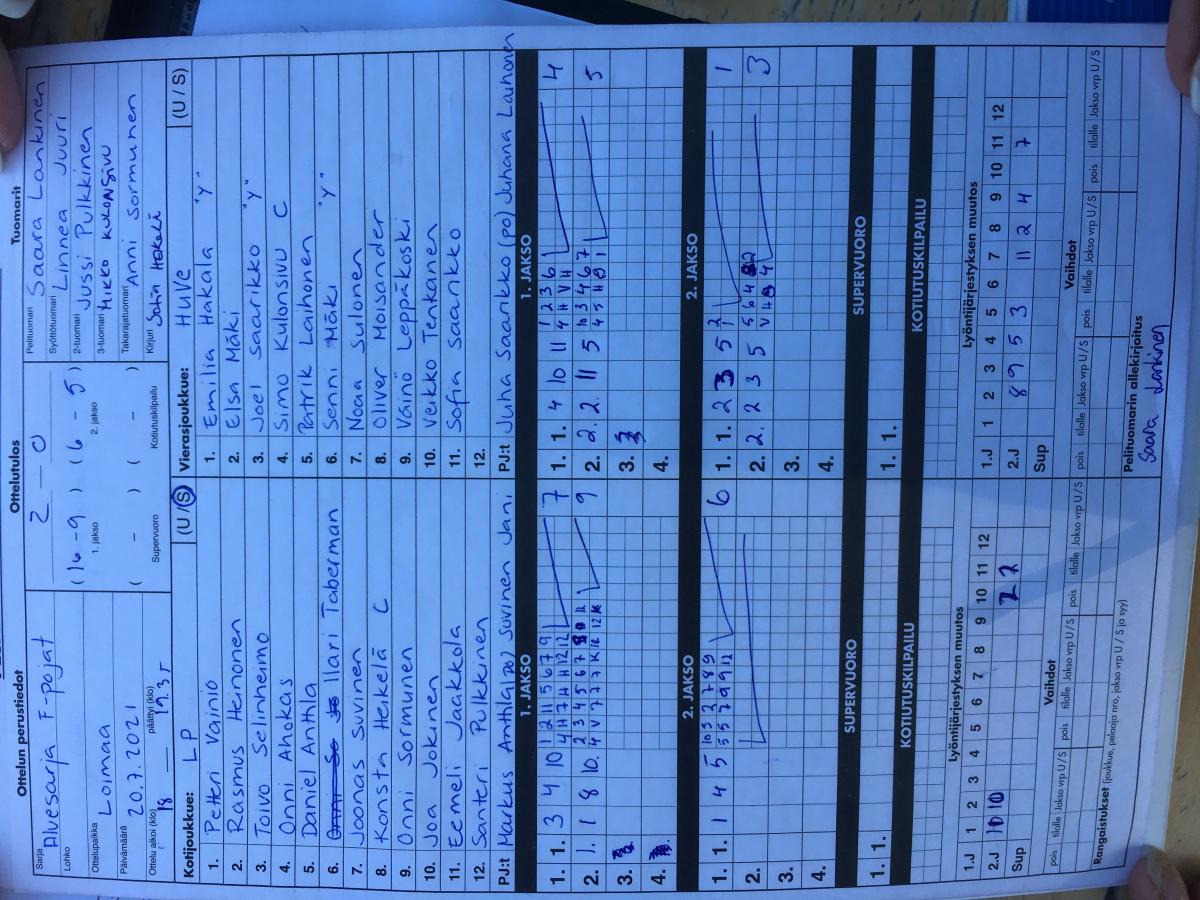 Ottelun perustiedot
Sarja Alvesarja F-pojat
Lohko
Ottelupaikka Loimaa
Päivämäärä 20.7.2021
Ottelu alkoi (klo) 18 päättyi (klo)
Ottelutulos
2 – 0
(16 – 9) (6 – 5)
1. jakso 2. jakso
( – ) ( – )
Supervuoro Kotiutuskilpailu
Tuomarit
Pelituomari Saara Lankinen
Syöttötuomari Linnea Juuri
2-tuomari Jussi Pulkkinen
3-tuomari Mikko Kulonsivu
Takarajatuomari Anni Sormunen
Kirjuri Satu
Kotijoukkue: LP (U / S)
1. Petteri Vainio
2. Rasmus Heinonen
3. Toivo Selinheimo
4. Onni Ahokas
5. Daniel Anthla
6. Ilari Taberman
7. Joonas Suvinen
8. Konsta Heikelä C
9. Onni Sormunen
10. Joa Jokinen
11. Eemeli Jaakkola
12. Santeri Pulkkinen
PJ:t Markus Anthla (po) Suvinen Jani
Vierasjoukkue: HuVe (U / S)
1. Emilia Hakala "Y"
2. Elsa Mäki
3. Joel Saarikko "Y"
4. Simo Kulonsivu C
5. Patrik Laihonen
6. Senni Mäki "Y"
7. Noa Sulonen
8. Oliver Moisander
9. Väinö Leppäkoski
10. Veikko Tenkanen
11. Sofia Saarikko
12.
PJ:t Juha Saarikko (po) Juhana Lauhonen
1. JAKSO
1. 1. 3 4 10 1 2 11 5 6 7 9 7
4 H 7 H H 12 12
2. 1. 1 8 10. 2 3 4 5 6 7 9
4 V 7 7 7
3.
4.
1. JAKSO
1. 1. 4 10 11 1 2 3 6 4
4 H V H
2. 2. 2 11 5 10 3 4 6 7 5
3.
4.
2. JAKSO
1. 1. 1 4 5 10 3 2 7 8 9 6
5 5 7 9 9 12
2.
3.
4.
2. JAKSO
1. 1. 2 3 5 1
2. 2 3 5 3
3.
4.
SUPERVUORO
1. 1.
SUPERVUORO
1. 1.
KOTIUTUSKILPAILU
KOTIUTUSKILPAILU
Lyöntijärjestyksen muutos
1 2 3 4 5 6 7 8 9 10 11 12
1.J
2.J 10 10
Sup
Lyöntijärjestyksen muutos
1 2 3 4 5 6 7 8 9 10 11 12
1.J
2.J 8 9 5 3 11 2 4 7
Sup
Vaihdot
pois tilalle Jakso vrp U / S pois tilalle Jakso vrp U / S pois tilalle Jakso vrp U / S
Vaihdot
pois tilalle Jakso vrp U / S pois tilalle Jakso vrp U / S pois tilalle Jakso vrp U / S
Rangaistukset (joukkue, pelaaja nro, jakso vrp U / S ja syy)
Pelituomarin allekirjoitus
Saara Lankinen